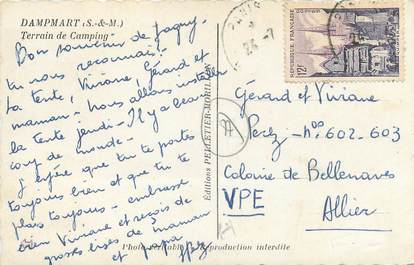 DAMPMART (S.-&-M.)
Terrain de Camping
Bon souvenir de Lagny
tu nous reconnais?
La tente, Viviane, Gérard et
maman - Nous allons installer
la tente jeudi - Il y a beau
coup de monde -
J'espère que tu te portes
toujours bien et que tu te
plais toujours - embrasse
bien Viviane et reçois de
grosses bises de maman
et papa
Éditions PELLETIER-MORILLON
PARIS
22 -7
RÉPUBLIQUE FRANÇAISE
POSTES
12F
Gérard et Viviane
Perez - nos 602-603
Colonie de Bellenaves
VPE
Allier
Photo véritable - Reproduction interdite